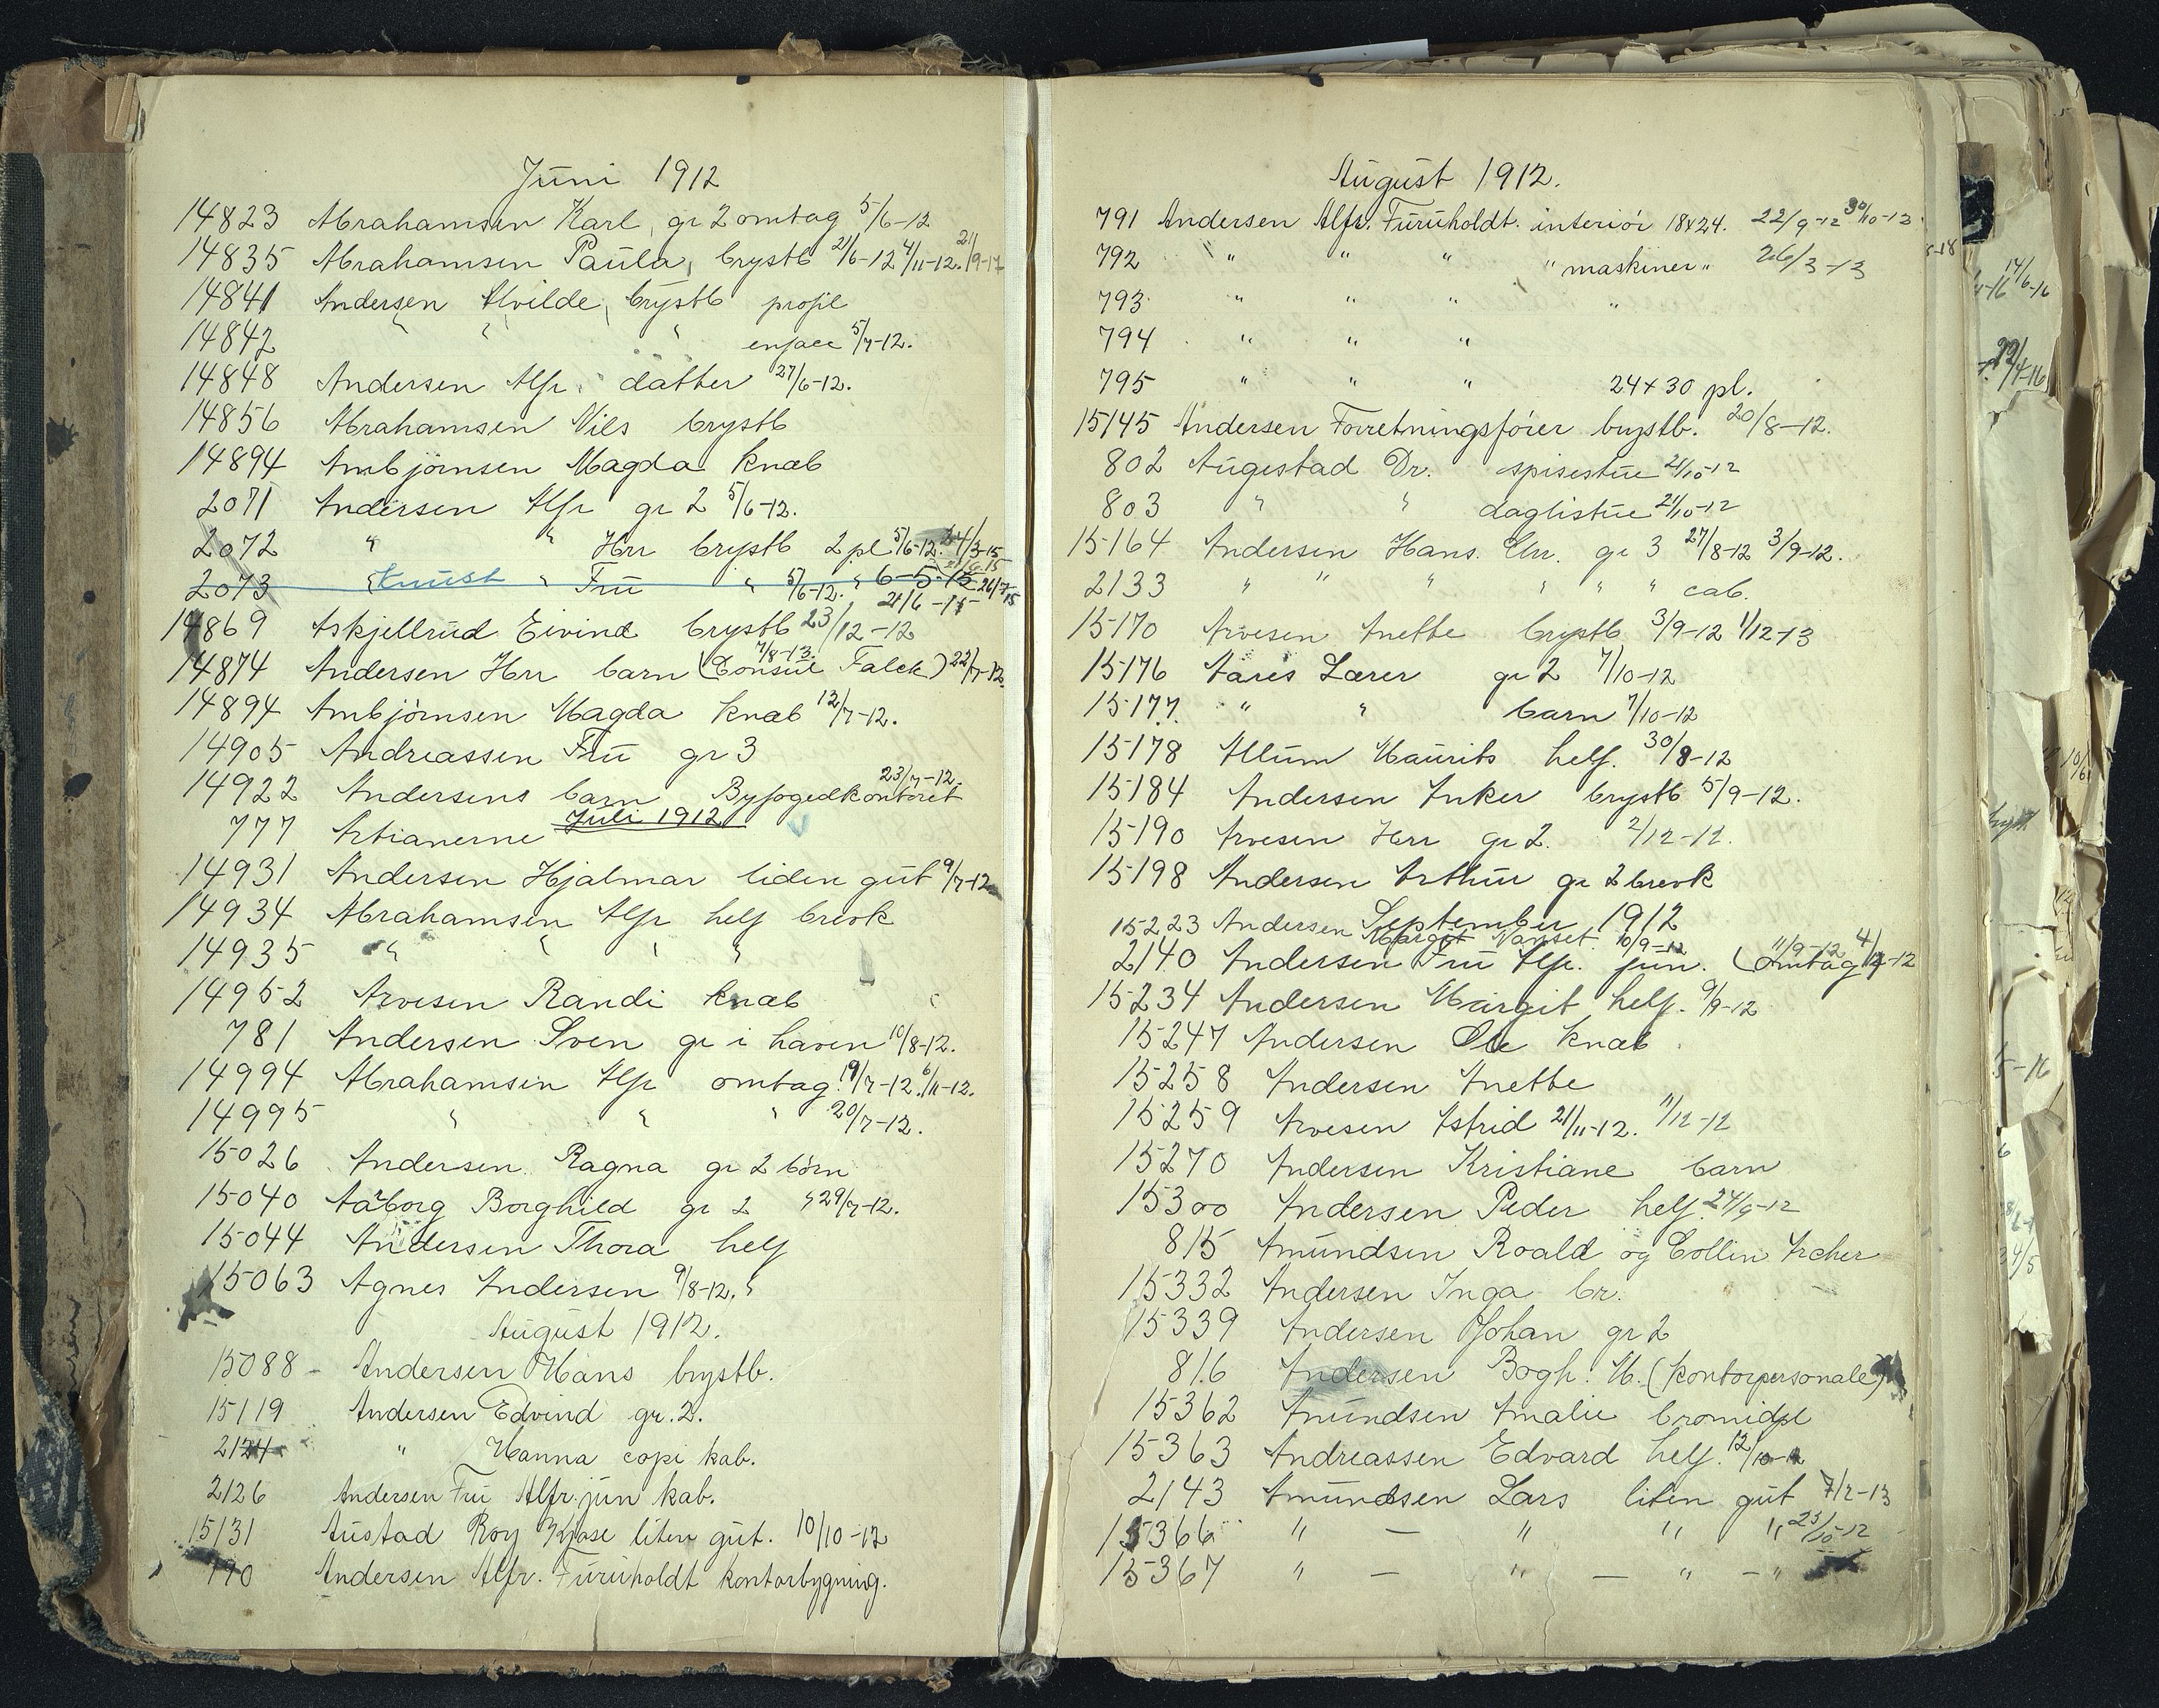 Juni 1912
14823 Abrahamsen Karl, gr 2 omtag 5/6-12
14835 Abrahamsen Paula, brystb 21/6-12 4/11-12. 21/9-17
14841 Andersen Alvilde, brystb profil
14842 " " " enface 5/7-12.
14848 Andersen Alfr. datter 27/6-12.
14856 Abrahamsen Nils brystb
14894 Ambjörnsen Magda knæb
2071 Andersen Alfr gr 2 5/6-12.
2072 " " Hrr brystb 2 pl 5/6-12. 24/3-15
2073 " knust " Fru " 5/6-12. " 6-5-15 26/7-15
21/6-15
14869 Askjellrud Eivind brystb 23/12-12
14874 Andersen Hrr barn (Consul Falck) 7/8-13. 22/7-12.
14894 Ambjörnsen Magda knæb 12/7-12.
14905 Andreassen Fru gr 3
14922 Andersens barn Byfogedkontoret 23/7-12.
Juli 1912
777 Artianerne
14931 Andersen Hjalmar liden gut 9/7-12
14934 Abrahamsen Alfr helf brevk
14935 " " " "
14952 Arvesen Randi knæb
781 Andersen Sven gr i haven 10/8-12.
14994 Abrahamsen Alfr omtag. 19/7-12. 6/11-12.
14995 " " " 20/7-12.
15026 Andersen Ragna gr 2 börn
15040 Aaborg Borghild gr 2 29/7-12.
15044 Andersen Thora helf
15063 Agnes Andersen 9/8-12.
August 1912.
15088 - Andersen Hans brystb.
15119 Andersen Edvind gr. 2.
2124 " Hanna copi kab.
2126 Andersen Fru Alfr. jun kab.
15131 Austad Roy Kjøse liten gut. 10/10-12
790 Andersen Alfr. Furuholdt kontorbygning.
August 1912.
791 Andersen Alfr. Furuholdt. interiör 18x24. 22/9-12 30/10-12.
792 " " " " maskiner " 26/3-13
793 " " " "
794 " " "
795 " " " 24x30 pl.
15145 Andersen Forretningsförer brystb. 20/8-12.
802 Augestad Dr. spisestue 21/10-12
803 " " daglistue 21/10-12
15164 Andersen Hans. Chr. gr 3 27/8-12 3/9-12.
2133 " " " " " " cab.
15170 Arvesen Anette brystb 3/9-12 1/12-13
15176 Aares Lærer gr 2 7/10-12
15177. " " barn 7/10-12
15178 Allum Maurits helf. 30/8-12
15184 Andersen Anker brystb 5/9-12.
15190 Arvesen Herr gr 2. 2/12-12.
15198 Andersen Arthur gr 2 brevk
September 1912
15223 Andersen Margit Nanset. 10/9-12
2140 Andersen Fru Alfr. jun. (omtag 11/9-12 4/12-12
15234 Andersen Margit helf. 9/9-12
15247 Andersen Ole knæb
15258 Andersen Anette
15259 Arvesen Astrid 21/11-12. 11/12-12
15270 Andersen Kristiane barn
15300 Andersen Peder helf. 24/9-12
815 Amundsen Roald og Collin Archer
15332 Andersen Inga br.
15339 Andersen Johan gr 2
816 Andersen Bogh. M. (kontorpersonale)
15362 Amundsen Amalie bromidpl
15363 Andreassen Edvard helf. 12/10-12
2143 Amundsen Lars liten gut 7/2-13
15366 " - " " " 23/10-12
15367 " - " - " - "